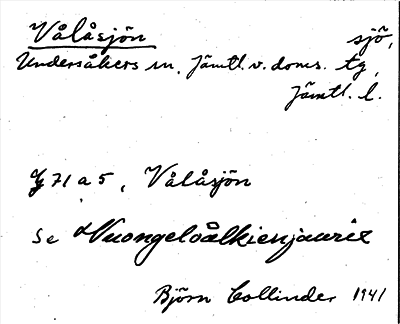 Vålåsjön sjö,
Undersåkers sn, Jämtl. v. doms. tg,
Jämtl. l.
G 71 a 5, Vålåsjön
Se Vuongeloålkienjaurie
Björn Collinder 1941